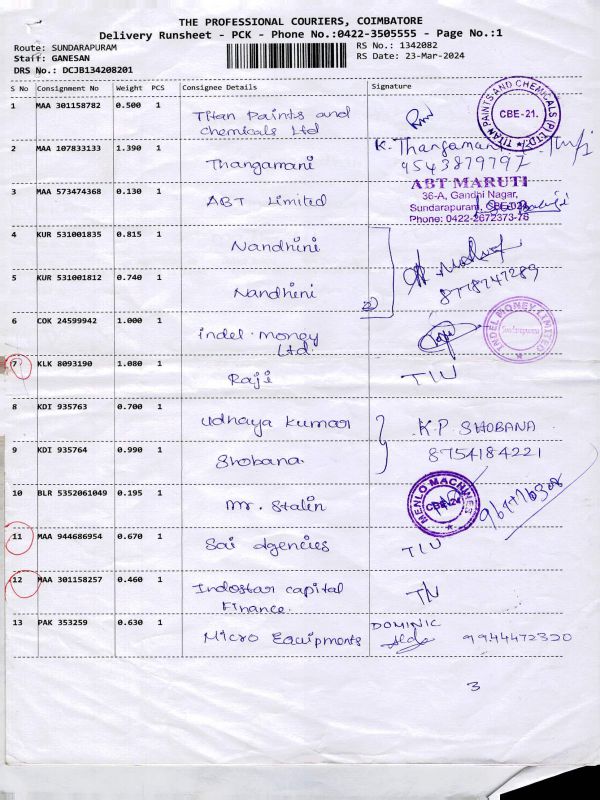 THE PROFESSIONAL COURIERS, COIMBATORE
Delivery Runsheet - PCK - Phone No.:0422-3505555 - Page No.:1
Route: SUNDARAPURAM RS No.: 1342082
Staff: GANESAN RS Date: 23-Mar-2024
DRS No.: DCJB134208201
S No Consignment No Weight PCS Consignee Details Signature
1 MAA 301158782 0.500 1 Titan Paints and
Chemicals Ltd
TITAN PAINTS AND CHEMICALS (P) LTD. CBE-21.
2 MAA 107833133 1.390 1 Thangamani K. Thangamani
9543879797
3 MAA 573474368 0.130 1 ABT Limited
ABT MARUTI
36-A, Gandhi Nagar,
Sundarapuram, CBE-024
Phone: 0422-2672373-76
4 KUR 531001835 0.815 1 Nandhini
8778747289
5 KUR 531001812 0.740 1 Nandhini
2
6 COK 24599942 1.000 1 indel money
Ltd.
INDEL MONEY LIMITED Sundarapuram
7 KLK 8093190 1.080 1 Raji TIU
8 KDI 935763 0.700 1 Udhaya Kumar K.P. SHOBANA
9 KDI 935764 0.990 1 Shobana 8754184221
10 BLR 5352061049 0.195 1 Mr. Stalin
MENLO MACHINES
11 MAA 944686954 0.670 1 Sai Agencies TIU
12 MAA 301158257 0.460 1 Indostar capital
Finance.
13 PAK 353259 0.630 1 Micro Equipments DOMINIC
9944472320
3